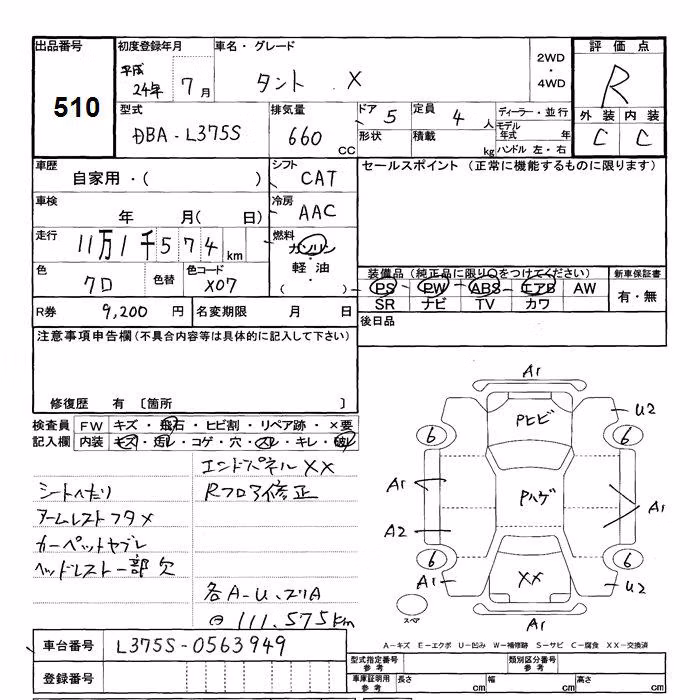 出品番号
510
初度登録年月
平成
24年 7月
車名・グレード
タント X
2WD
・
4WD
評価点
R
外装 内装
C C
型式
DBA-L375S
排気量
660 CC
ドア 5
定員 4 人
形状
積載 kg
ディーラー・並行
モデル年式 年
ハンドル 左・右
車歴
自家用・( )
シフト
CAT
セールスポイント (正常に機能するものに限ります)
車検
年 月( 日)
冷房
AAC
走行
11万1千574km
燃料
ガソリン
・
軽油
・
( )
色
クロ
色替
色コード
X07
装備品 (純正品に限り○をつけてください)
PS PW ABS エアB AW
SR ナビ TV カワ
新車保証書
有・無
R券 9,200 円
名変期限 月 日
後日品
注意事項申告欄 (不具合内容等は具体的に記入して下さい)
修復歴 有 〔箇所 〕
検査員 FW キズ・飛石・ヒビ割・リペア跡・×要
記入欄 内装 キズ・汚レ・コゲ・穴・スレ・キレ・破レ
エンドパネルXX
シートヘタリ
Rフロア修正
アームレストフタメ
カーペットヤブレ
ヘッドレスト一部欠
各A-U、スリA
111.575km
A1
Pヒビ
U2
6 6
A1
Pハゲ
A1
A2
6 6
A1
XX
U2
A1
スペア
A-キズ E-エクボ U-凹み W-補修跡 S-サビ C-腐食 XX-交換済
車台番号 L375S-0563949
登録番号
型式指定番号
参考
類別区分番号
参考
車庫証明用
参考
長さ cm
幅 cm
高さ cm